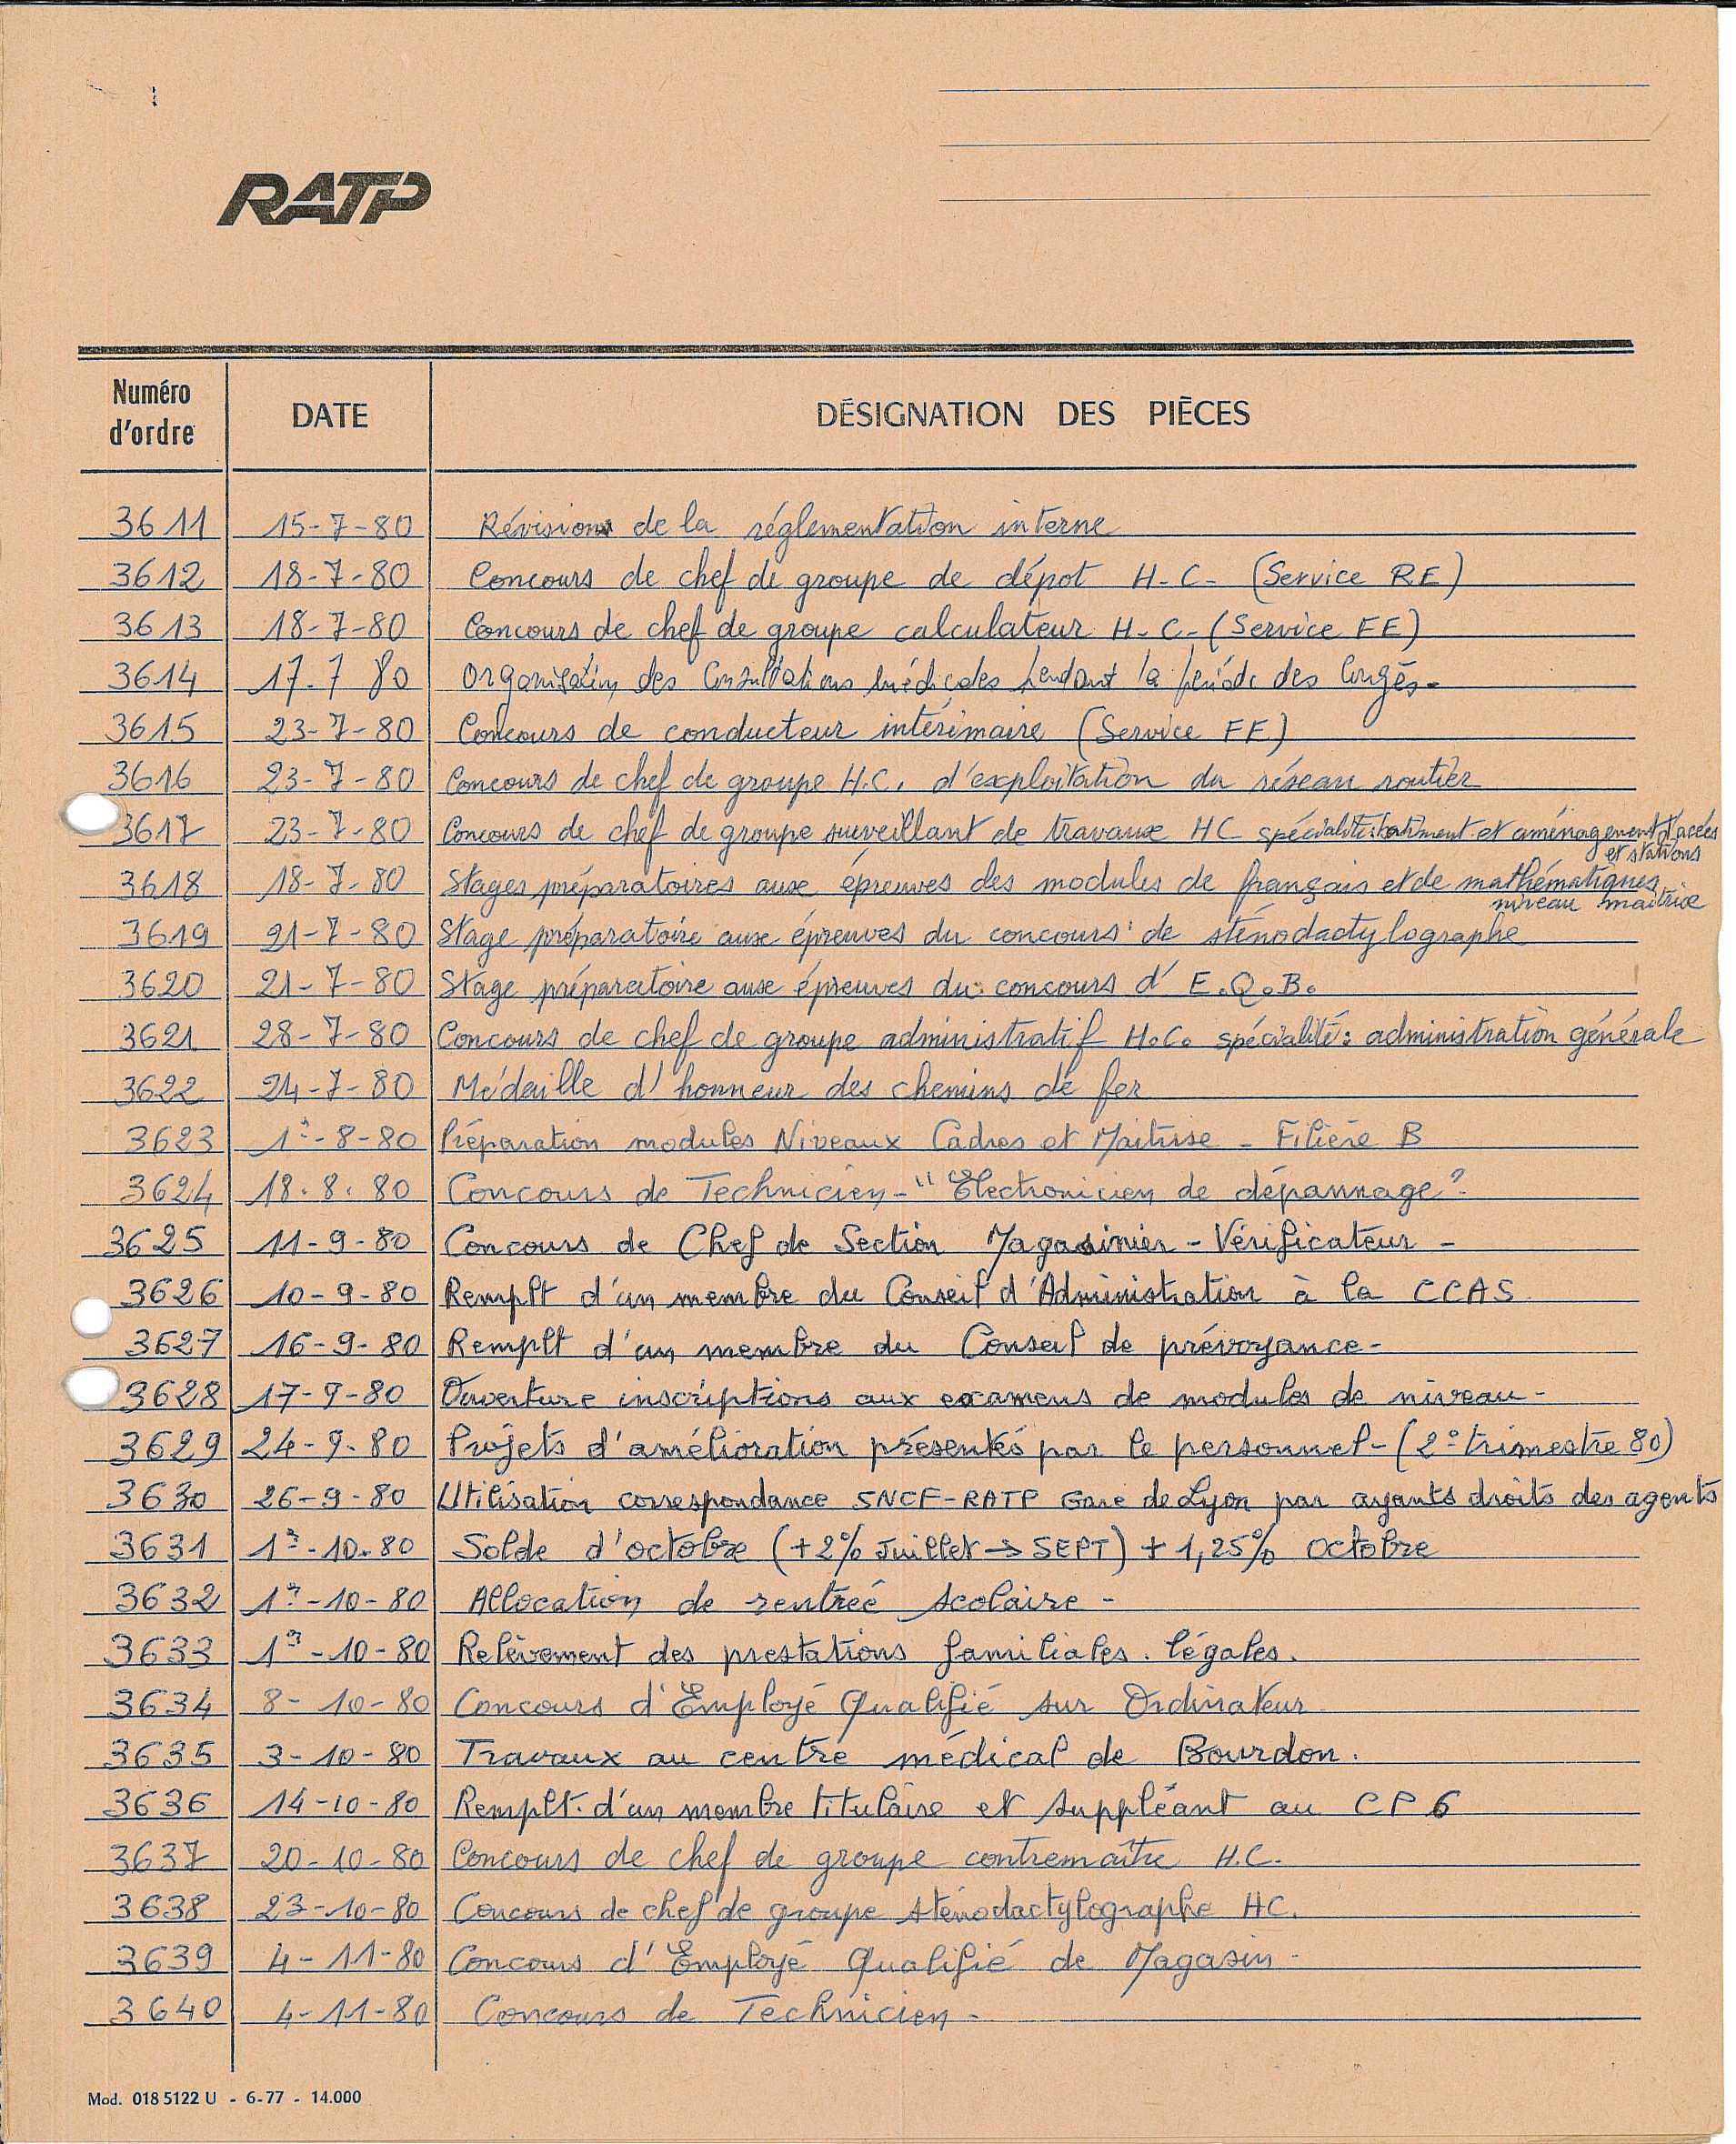 RATP
Numéro d'ordre DATE DÉSIGNATION DES PIÈCES
3611 15-7-80 Révision de la réglementation interne
3612 18-7-80 Concours de chef de groupe de dépot H-C- (Service RE)
3613 18-7-80 Concours de chef de groupe calculateur H-C- (Service FE)
3614 17.7 80 Organisation des Consultations médicales pendant la période des Congés.
3615 23-7-80 Concours de conducteur intérimaire (Service FE)
3616 23-7-80 Concours de chef de groupe H.C. d'exploitation du réseau routier
3617 23-7-80 Concours de chef de groupe surveillant de travaux HC spécialité: batiment et aménagement d'accès
et stations
3618 18-7-80 Stages préparatoires aux épreuves des modules de français et de mathématiques
niveau maitrise
3619 21-7-80 Stage préparatoire aux épreuves du concours de sténodactylographe
3620 21-7-80 Stage préparatoire aux épreuves du concours d'E.Q.B.
3621 28-7-80 Concours de chef de groupe administratif H.C. spécialité: administration générale
3622 24-7-80 Médaille d'honneur des chemins de fer
3623 1er-8-80 Préparation modules Niveaux Cadres et Maitrise - Filière B
3624 18.8.80 Concours de Technicien - "Electronicien de dépannage"
3625 11-9-80 Concours de Chef de Section Magasinier - Vérificateur -
3626 10-9-80 Remplt d'un membre du Conseil d'Administration à la CCAS
3627 16-9-80 Remplt d'un membre du Conseil de prévoyance -
3628 17-9-80 Ouverture inscriptions aux examens de modules de niveau -
3629 24-9-80 Projets d'amélioration présentés par le personnel - (2e trimestre 80)
3630 26-9-80 Utilisation correspondance SNCF-RATP Gare de Lyon par ayants droits des agents
3631 1er-10-80 Solde d'octobre (+2% Juillet → SEPT) + 1,25% Octobre
3632 1er-10-80 Allocation de rentrée scolaire -
3633 1er-10-80 Relèvement des prestations familiales. légales.
3634 8-10-80 Concours d'Employé Qualifié sur Ordinateur
3635 3-10-80 Travaux au centre médical de Bourdon.
3636 14-10-80 Remplt. d'un membre titulaire et suppléant au CP6
3637 20-10-80 Concours de chef de groupe contremaître H.C.
3638 23-10-80 Concours de chef de groupe sténodactylographe HC.
3639 4-11-80 Concours d'Employé Qualifié de Magasin -
3640 4-11-80 Concours de Technicien -
Mod. 018 5122 U - 6-77 - 14.000